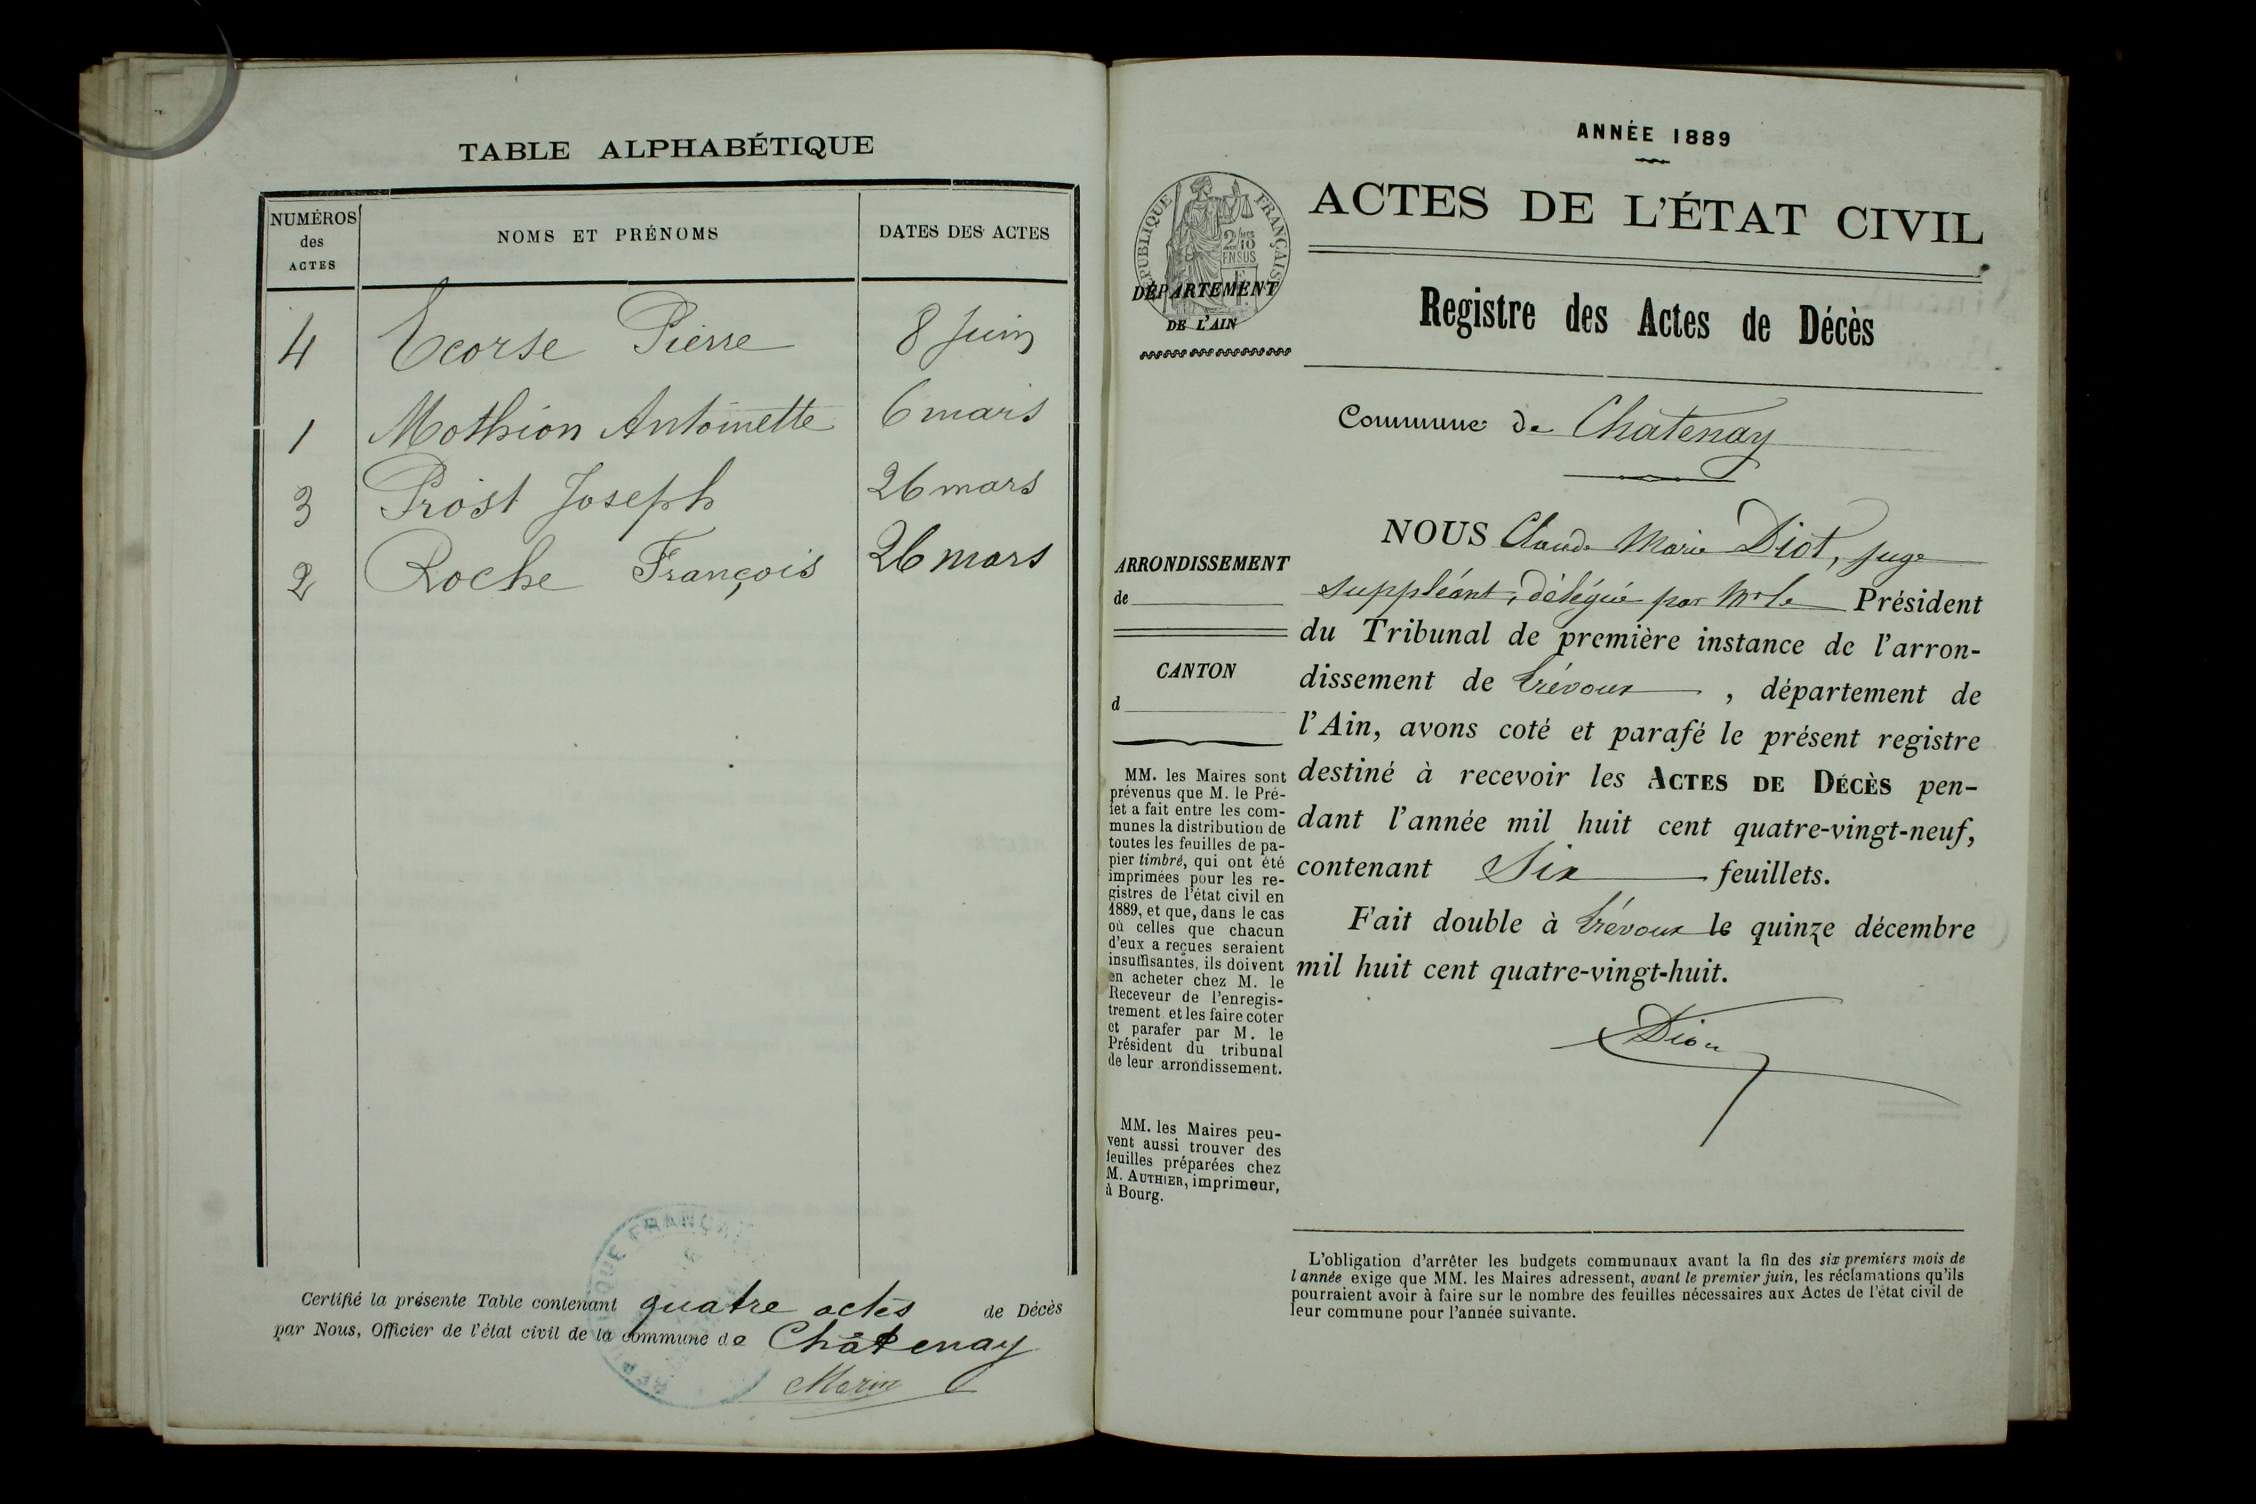 TABLE ALPHABÉTIQUE
NUMÉROS des ACTES
NOMS ET PRÉNOMS
DATES DES ACTES
4 Ecorse Pierre 8 Juin
1 Mothion Antoinette 6 mars
3 Prost Joseph 26 mars
2 Roche François 26 mars
Certifié la présente Table contenant quatre actes de Décès
par Nous, Officier de l'état civil de la commune de Châtenay
Marin
ANNÉE 1889
ACTES DE L'ÉTAT CIVIL
RÉPUBLIQUE FRANÇAISE
DÉPARTEMENT
DE L'AIN
Registre des Actes de Décès
Commune de Chatenay
ARRONDISSEMENT
de
CANTON
d
MM. les Maires sont
prévenus que M. le Pré-
fet a fait entre les com-
munes la distribution de
toutes les feuilles de pa-
pier timbré, qui ont été
imprimées pour les re-
gistres de l'état civil en
1889, et que, dans le cas
où celles que chacun
d'eux a reçues seraient
insuffisantes, ils doivent
en acheter chez M. le
Receveur de l'enregis-
trement et les faire coter
et parafer par M. le
Président du tribunal
de leur arrondissement.
MM. les Maires peu-
vent aussi trouver des
feuilles préparées chez
M. AUTHIER, imprimeur,
à Bourg.
NOUS Claude Marie Diot, juge
suppléant, délégué par Mr le Président
du Tribunal de première instance de l'arron-
dissement de Trévoux , département de
l'Ain, avons coté et parafé le présent registre
destiné à recevoir les ACTES DE DÉCÈS pen-
dant l'année mil huit cent quatre-vingt-neuf,
contenant Six feuillets.
Fait double à Trévoux le quinze décembre
mil huit cent quatre-vingt-huit.
L'obligation d'arrêter les budgets communaux avant la fin des six premiers mois de
l'année exige que MM. les Maires adressent, avant le premier juin, les réclamations qu'ils
pourraient avoir à faire sur le nombre des feuilles nécessaires aux Actes de l'état civil de
leur commune pour l'année suivante.